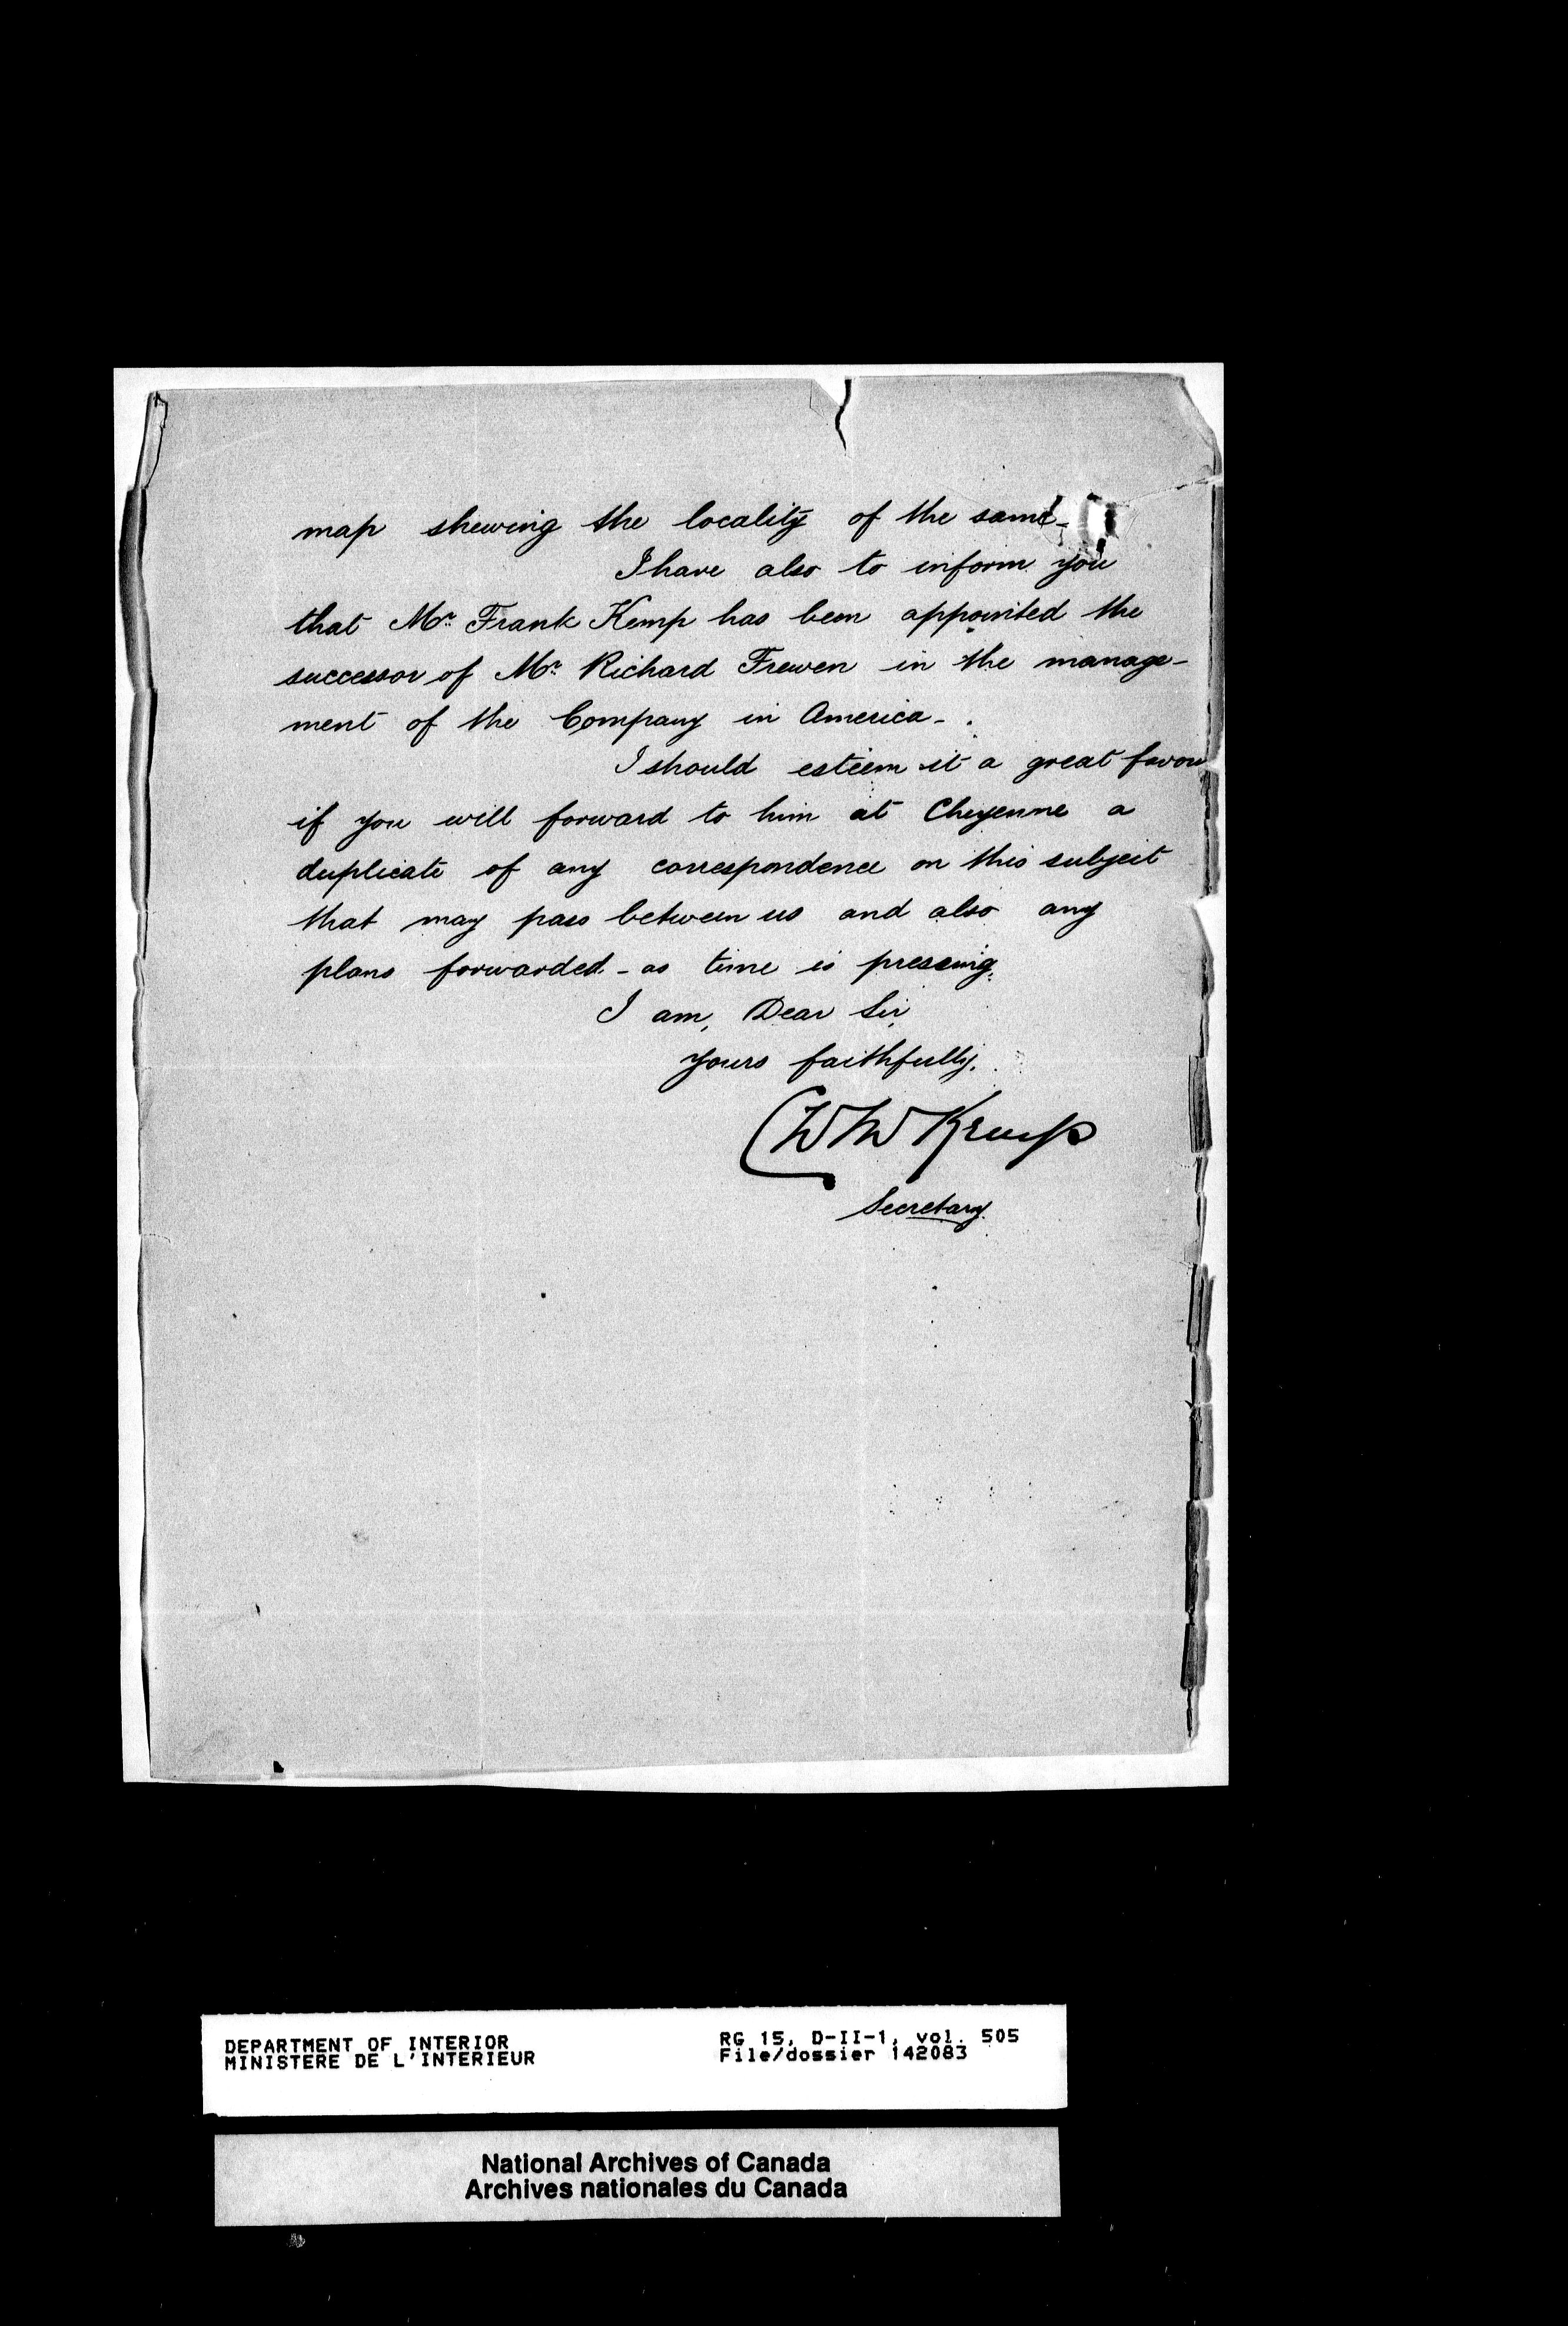 map shewing the locality of the same -
I have also to inform you
that Mr. Frank Kemp has been appointed the
successor of Mr. Richard Frewen in the manage-
ment of the Company in America - .
I should esteem it a great favou
if you will forward to him at Cheyenne a
duplicate of any correspondence on this subject
that may pass between us and also any
plans forwarded - as time is pressing.
I am, Dear Sir,
Yours faithfully.
Kemp
Secretary.
DEPARTMENT OF INTERIOR
MINISTERE DE L'INTERIEUR
RG 15, D-II-1, vol. 505
File/dossier 142083
National Archives of Canada
Archives nationales du Canada